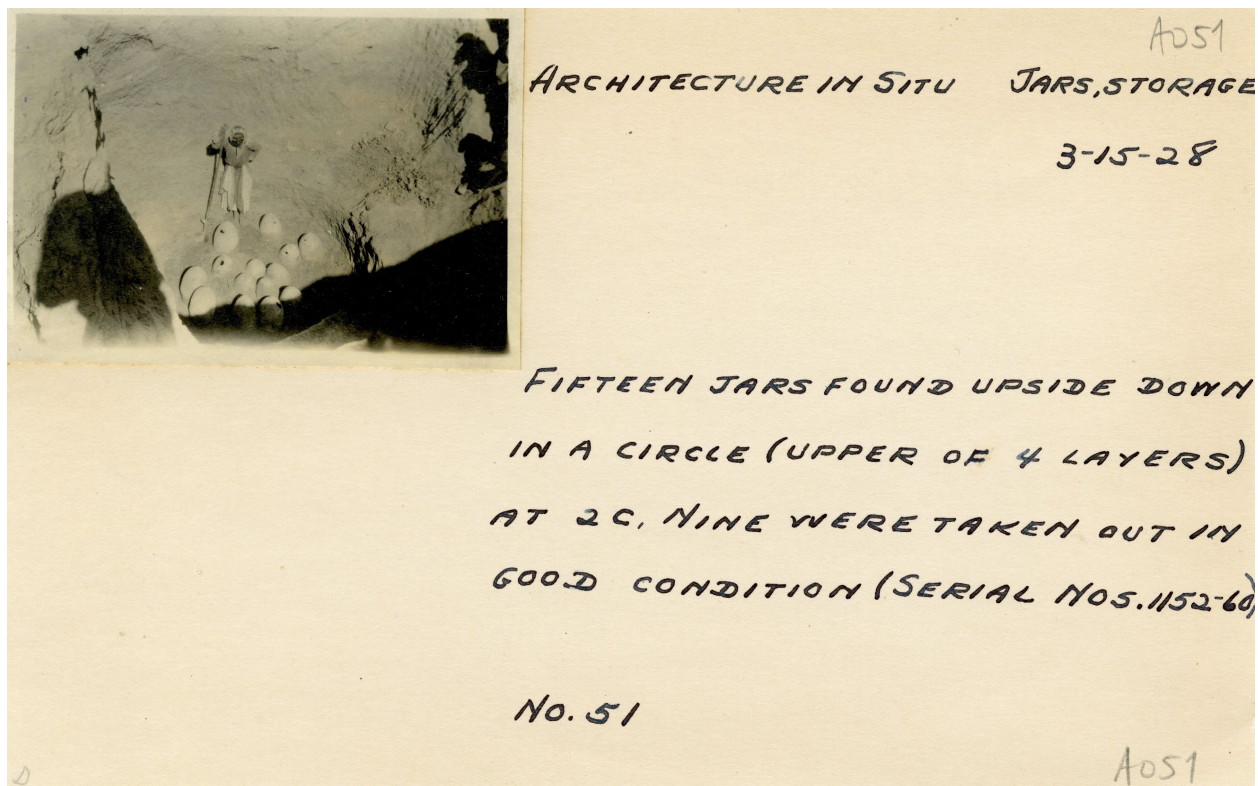 A051
ARCHITECTURE IN SITU JARS, STORAGE
3-15-28
FIFTEEN JARS FOUND UPSIDE DOWN
IN A CIRCLE (UPPER OF 4 LAYERS)
AT 2C. NINE WERE TAKEN OUT IN
GOOD CONDITION (SERIAL NOS. 1152-60)
NO. 51
A051
D